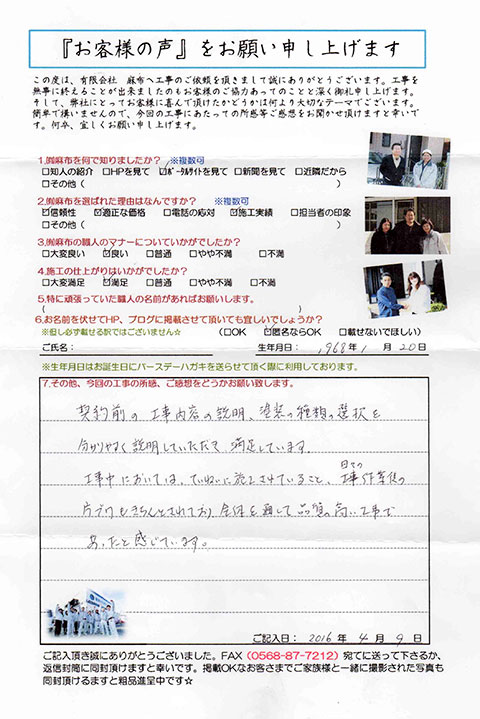 『お客様の声』をお願い申し上げます
この度は、有限会社 麻布へ工事のご依頼を頂きまして誠にありがとうございます。工事を
無事に終えることが出来ましたのもお客様のご協力あってのことと深く御礼申し上げます。
そして、弊社にとってお客様に喜んで頂けたかどうかは何より大切なテーマでございます。
簡単で構いませんので、今回の工事にあたっての所感等ご感想をお聞かせ頂けますと幸いで
す。何卒、宜しくお願い申し上げます。
1.㈲麻布を何で知りましたか? ※複数可
□知人の紹介 □HPを見て ☑ポータルサイトを見て □新聞を見て □近隣だから
□その他( )
2.㈲麻布を選ばれた理由はなんですか? ※複数可
☑信頼性 ☑適正な価格 □電話の応対 ☑施工実績 □担当者の印象
□その他( )
3.㈲麻布の職人のマナーについていかがでしたか?
□大変良い ☑良い □普通 □やや不満 □不満
4.施工の仕上がりはいかがでしたか?
□大変満足 ☑満足 □普通 □やや不満 □不満
5.特に頑張っていた職人の名前があればお願いします。
( )
6.お名前を伏せてHP、ブログに掲載させて頂いても宜しいでしょうか?
※但し必ず載せる訳ではございません☆ (□OK ☑匿名ならOK □載せないでほしい)
ご氏名: 生年月日: 1968年 1月 20日
※生年月日はお誕生日にバースデーハガキを送らせて頂く際に利用しております。
7.その他、今回の工事の所感、ご感想をどうかお願い致します。
契約前の工事内容の説明、塗装の種類の選択を
分かりやすく説明していただき、満足しています。
工事中においては、ていねいに施工されていること、日々の工事作業後の
片づけもきちんとされており、全体を通して品質の高い工事で
あったと感じています。
ご記入日: 2016年 4月 9日
ご記入頂き誠にありがとうございました。FAX(0568-87-7212)宛てに送って下さるか、
返信封筒に同封頂けますと幸いです。掲載OKなお客さまでご家族様と一緒に撮影された写真も
同封頂けるますと粗品進呈中です☆